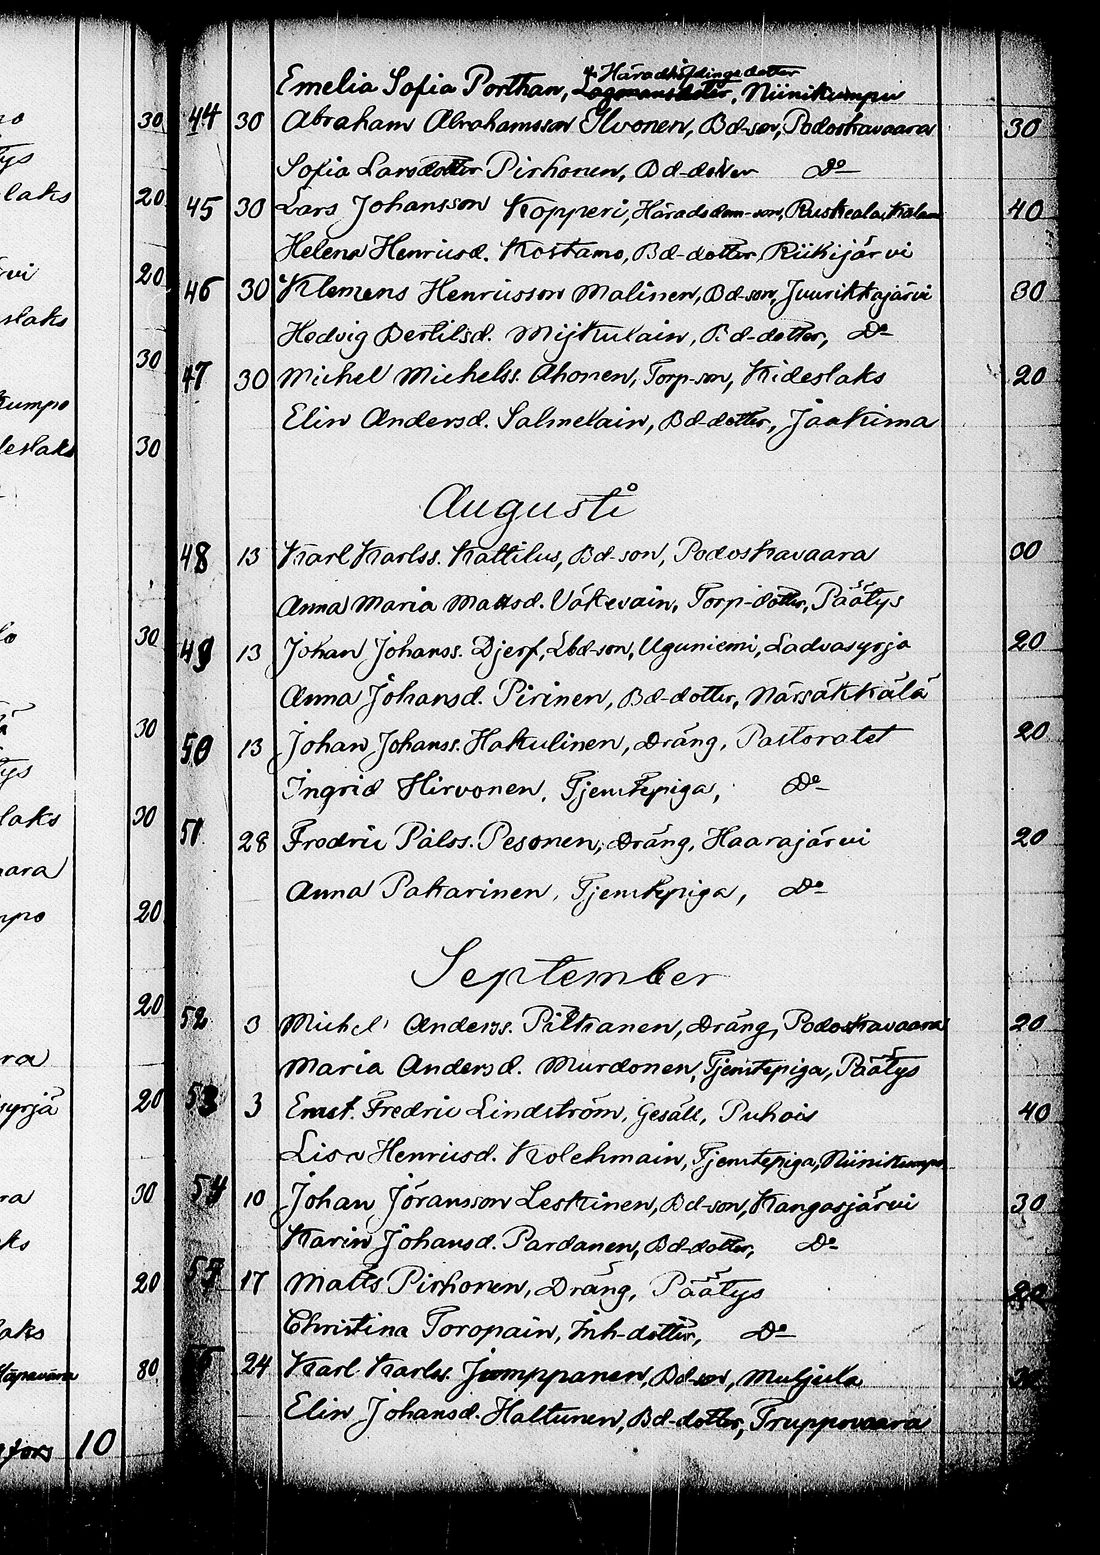 f. Häradshöfdinge dotter
Emelia Sofia Porthan, Lagmansdotter, Niinikumpu
44 30 Abraham Abrahamsson Ilvonen, Bd-son, Podoskavaara 30
Sofia Larsdotter Pirhonen, Bd-dotter Do
45 30 Lars Johansson Kopperi, Härads dom-son, Ruskeala, 40
Helena Henricsd. Kostamo, Bd-dotter, Riikijärvi
46 30 Klemens Henricsson Malinen, Bd-son, Juurikkajärvi 30
Hedvig Bertilsd. Mijkulain, Bd-dotter, Do
47 30 Michel Michelss. Ahonen, Torp-son, Kideslaks 20
Elin Andersd. Salmelain, Bd-dotter, Jaakima
Augusti
48 13 Karl Karlss. Kattilus, Bd-son, Podoskavaara 30
Anna Maria Mattsd. Väkevain, Torp-dotter, Päätys
49 13 Johan Johanss. Djerf, Lbd-son, Uguniemi, Ladvasyrja 20
Anna Johansd. Pirinen, Bd-dotter, Närsäkkälä
50 13 Johan Johanss. Hakulinen, Dräng, Pastoratet 20
Ingrid Hirvonen, Tjenstepiga, Do
51 28 Fredric Pålss. Pesonen, Dräng, Haarajärvi 20
Anna Pakarinen, Tjenstepiga, Do
September
52 3 Michel Anderss. Pitkanen, Dräng, Podoskavaara 20
Maria Andersd. Murdonen, Tjenstepiga, Päätys
53 3 Ernst Fredric Lindström, Gesäll, Puhois 40
Lisa Henricsd. Kolehmain, Tjenstepiga, Niinikumpu
54 10 Johan Jöransson Leskinen, Bd-son, Kangasjärvi 30
Karin Johansd. Pardanen, Bd-dotter, Do
55 17 Matts Pirhonen, Dräng, Päätys 20
Christina Toropain, Inh-dotter, Do
56 24 Karl Karlss. Jumppanen, Bd-son, Muljula
Elin Johansd. Haltunen, Bd-dotter, Pruppovaara